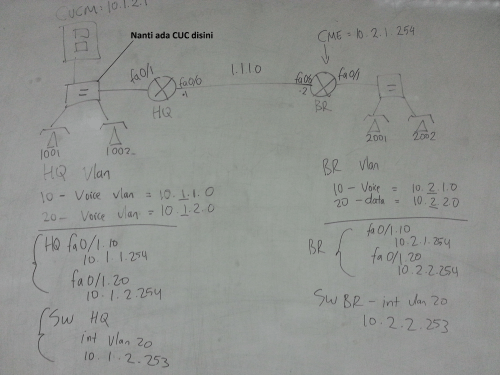 CUCM = 10.1.2.1
Nanti ada CUC disini
CME = 10.2.1.254
fa0/1
fa0/0
.1
1.1.1.0
fa0/0
.2
fa0/1
HQ
BR
1001
1002
2001
2002
HQ Vlan
10 - Voice vlan = 10.1.1.0
20 - Voice vlan = 10.1.2.0
HQ fa0/1.10
10.1.1.254
fa0/1.20
10.1.2.254
SW HQ
int vlan 20
10.1.2.253
BR vlan
10 - Voice = 10.2.1.0
20 - data = 10.2.2.0
BR
fa0/1.10
10.2.1.254
fa0/1.20
10.2.2.254
SW BR - int vlan 20
10.2.2.253